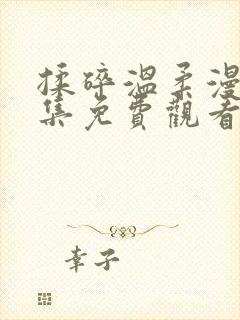 揉碎溫柔漫
集免費觀看
幸子